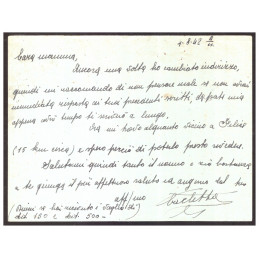 1.8.42
Cara mamma,
Ancora una volta ho cambiato indirizzo,
quindi mi raccomando di non pensare male se non avrai
immediata risposta ai tuoi precedenti scritti, da parte mia
appena avrò tempo ti scriverò a lungo.
Ora mi trovo alquanto vicino a
(15 km circa) e spero perciò di poterlo presto rivedere.
Salutami quindi tanto il nonno e
te giunga il più affettuoso saluto ed augurio dal tuo
aff/mo
(Dimmi se hai ricevuto i vaglia
da 150 e 500